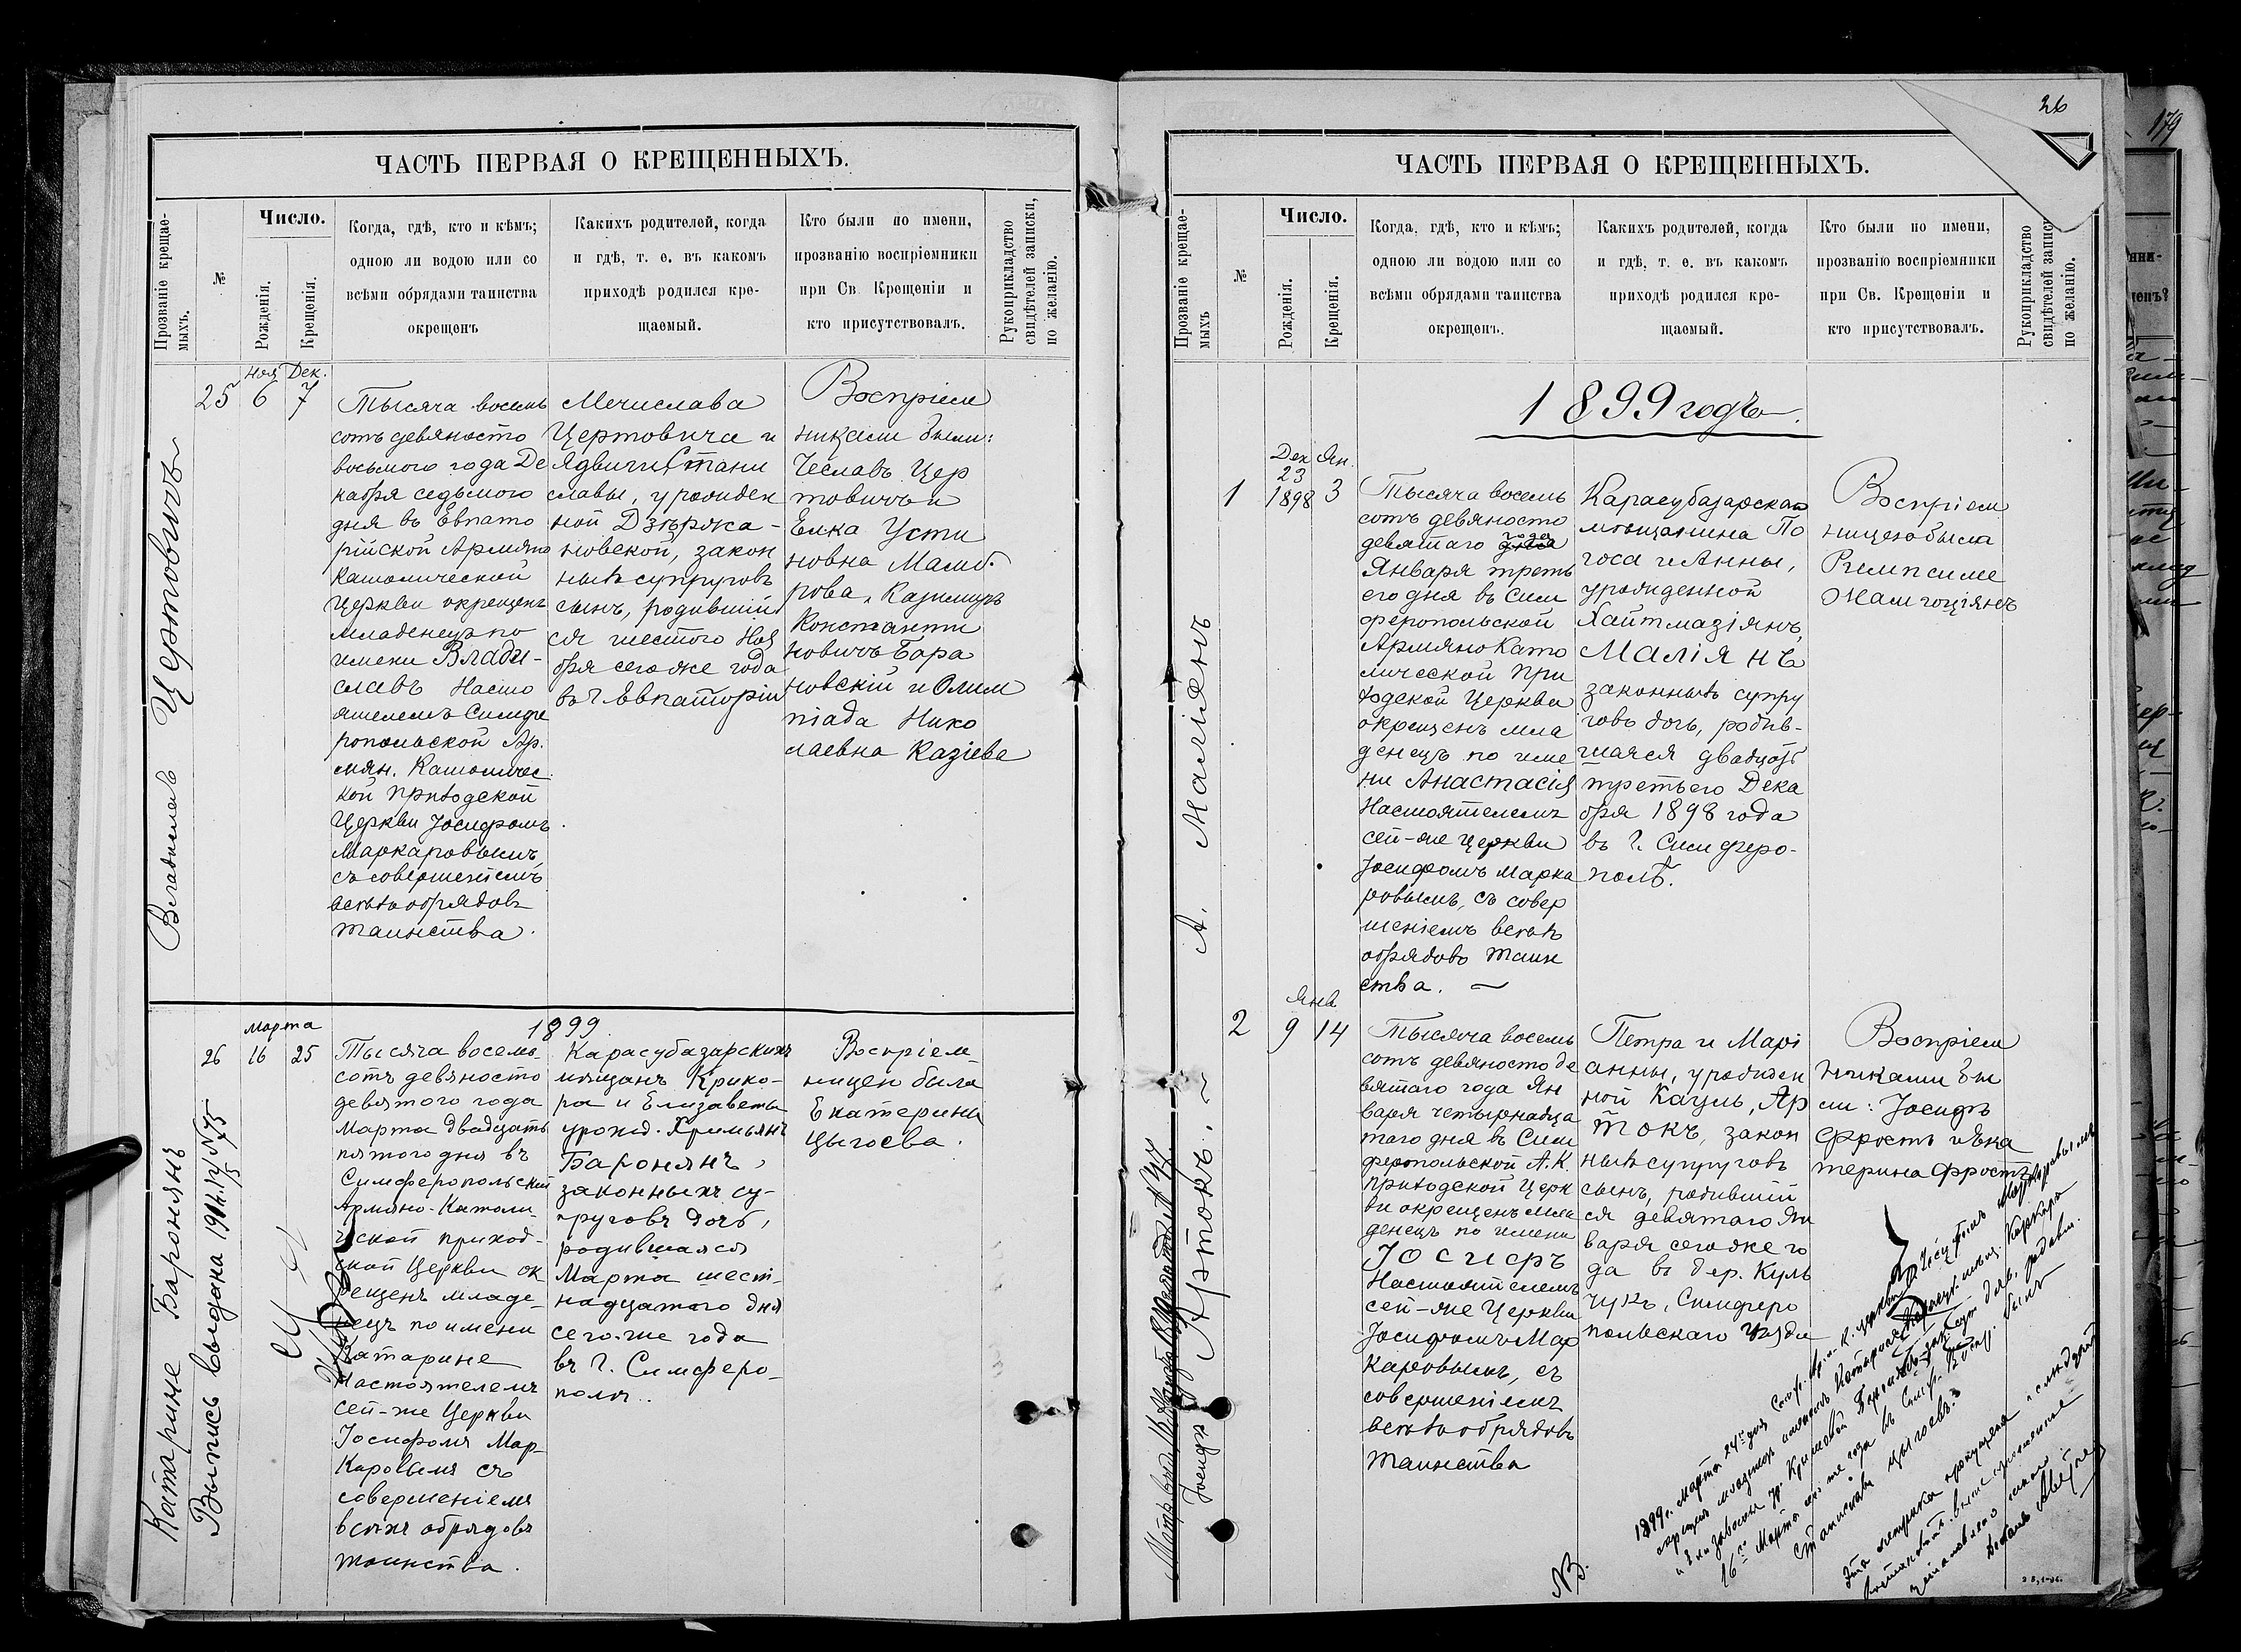 ЧАСТЬ ПЕРВАЯ О КРЕЩЕННЫХЪ.
Прозваніе крещае-
мыхъ.
№
Число.
Рожденія.
Крещенія.
Когда, гдѣ, кто и кѣмъ;
одною ли водою или со
всѣми обрядами таинства
окрещенъ
Какихъ родителей, когда
и гдѣ, т. е. въ какомъ
приходѣ родился кре-
щаемый.
Кто были по имени,
прозванію воспріемники
при Св. Крещеніи и
кто присутствовалъ.
Рукоприкладство
свидѣтелей записки,
по желанію.
Владиславъ Цертовичъ
25
Ноя
6
Дек.
7
Тысяча восемь
сотъ девяносто
восьмого года Де
кабря седьмого
дня въ Евпато
рійской Армяно
Католической
Церкви окрещенъ
младенецъ по
имени Влади-
славъ Насто
ятелемъ Симфе
ропольской Ар.
мян. Католичес
кой приходской
Церкви Іосифомъ
Маркаровымъ,
съ совершеніемъ
всѣхъ обрядовъ
таинства.
Мечислава
Цертовича и
Ядвиги Стани
славы, урожден
ной Дзержа-
новской, закон
ныхъ супруговъ
сынъ, родившій
ся шестого Ноя
бря сего же года
въ г. Евпаторіи
Воспріем
никами были:
Чеславъ Цер
товичъ и
Елка Усти
новна
Казимиръ
Константи
новичъ Бара
новскій и Олим
піада Нико
лаевна Казіева
Катарине Баронянъ
Выпись выдана
26
Марта
16
25
1899
Тысяча восемь
сотъ девяносто
девятого года
Марта двадцать
пятого дня въ
Симферопольской
Армяно-Католи
ческой приход-
ской Церкви ок
рещенъ младе-
нецъ по имени
Катарине
Настоятелемъ
сей-же Церкви
Іосифомъ Мар-
каровымъ съ
совершеніемъ
всѣхъ обрядовъ
таинства.
Карасубазарскихъ
мѣщанъ Крико-
ра и Елизаветы
урожд. Хримьянъ
Баронянъ,
законныхъ су-
пруговъ дочь,
родившаяся
Марта шест-
надцатаго дня
сего-же года
въ г. Симферо-
полѣ.
Воспріем-
ницей была
Екатерина
Цыгоева.
26
179
ЧАСТЬ ПЕРВАЯ О КРЕЩЕННЫХЪ.
Прозваніе крещае-
мыхъ
№
Число.
Рожденія.
Крещенія.
Когда, гдѣ, кто и кѣмъ;
одною ли водою или со
всѣми обрядами таинства
окрещенъ.
Какихъ родителей, когда
и гдѣ, т. е. въ какомъ
приходѣ родился кре-
щаемый.
Кто были по имени,
прозванію воспріемники
при Св. Крещеніи и
кто присутствовалъ.
Рукоприкладство
свидѣтелей запис
по желанію.
1899 годъ.
А. Маліянъ
1
Дек
23
1898
Ян.
3
Тысяча восемь
сотъ девяносто
девятаго года
Января треть
его дня въ Сим
феропольской
Армяно Като
лической При
ходской Церкви
окрещенъ мла
денецъ по име
ни Анастасія
Настоятелемъ
сей-же Церкви
Іосифомъ Марка
ровымъ, съ совер
шеніемъ всѣхъ
обрядовъ таин
ства.
Карасубазарскаго
мѣщанина По
госа и Анны,
урожденной
Хайтмазіянъ,
Маліянъ
законныхъ супру
говъ дочь, родив-
шаяся двадцать
третьего Дека
бря 1898 года
въ г. Симферо-
полѣ.
Воспріем
ницею была
Рипсиме
Іосифъ Артокъ.
2
Янв
9
14
Тысяча восемь
сотъ девяносто де
вятаго года Ян
варя четырнадца
таго дня въ Сим
феропольской А. К.
приходской Церк
ви окрещенъ мла
денецъ по имени
Іосифъ
Настоятелемъ
сей-же Церкви
Іосифомъ Мар
каровымъ, съ
совершеніемъ
всѣхъ обрядовъ
таинства
Петра и Марі
анны, урожден
ной Кауль, Ар
токъ, закон
ныхъ супруговъ
сынъ, родившій
ся девятаго Ян
варя сего же го
да въ дер. Куль
чукъ, Симферо
польскаго уѣзда
Воспріем
никами бы
ли: Іосифъ
Фростъ и Ека
терина Фростъ
NB.
1899г. Марта
16го Марта
Эта метрика пропущена